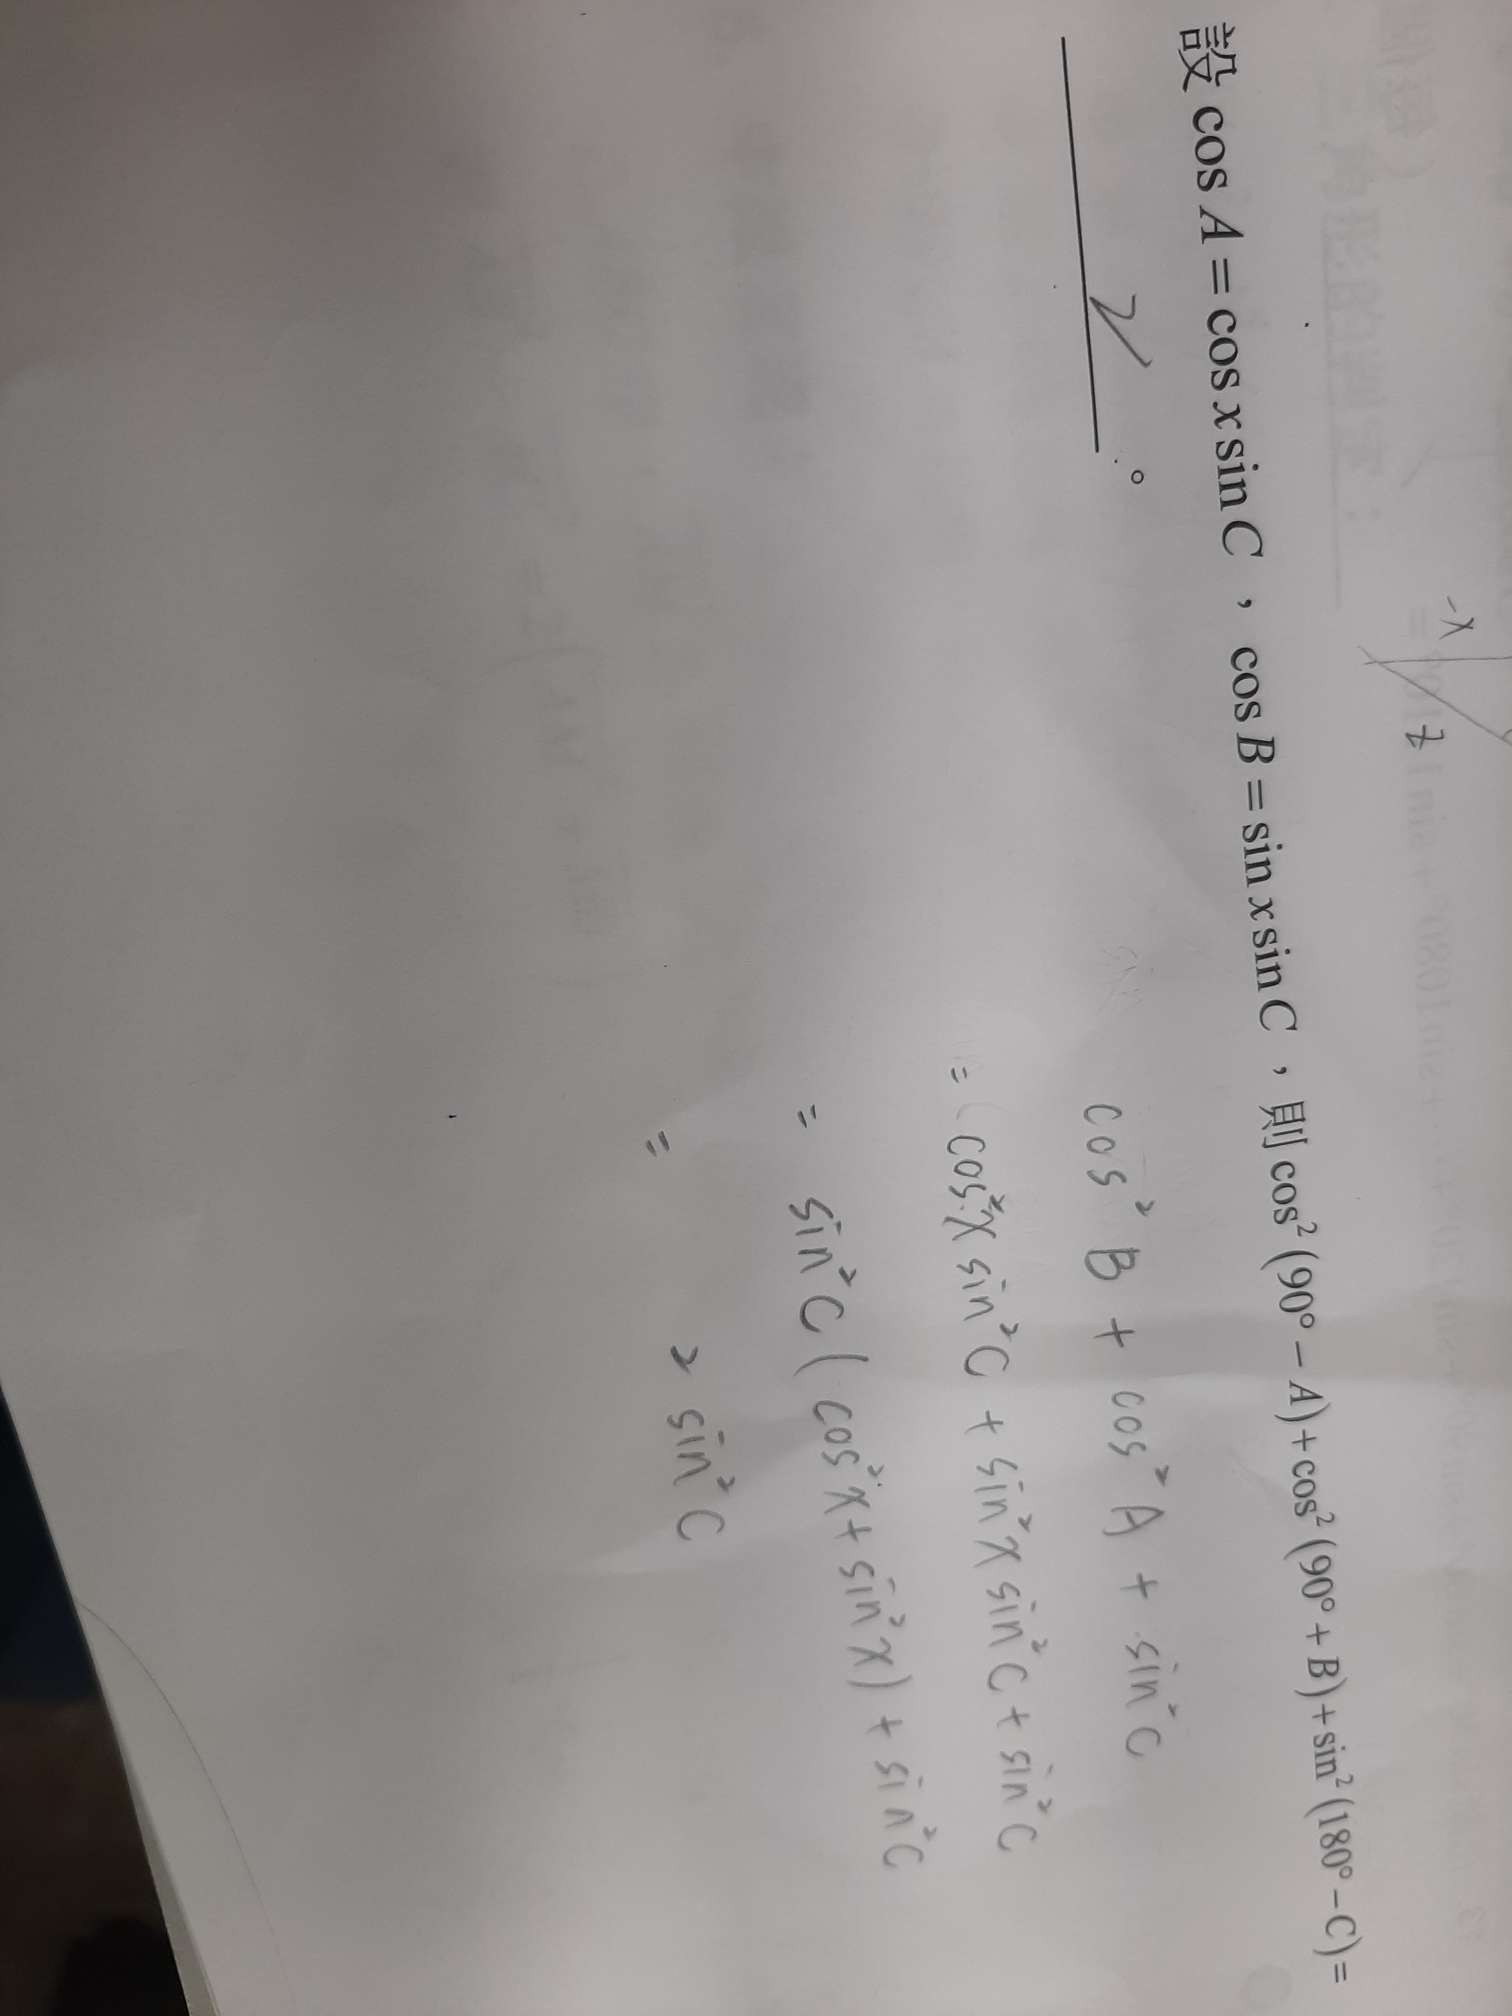 -x
z
設 cos A = cos x sin C ，cos B = sin x sin C ，則 cos² (90° − A) + cos² (90° + B) + sin² (180° − C) =
2 。
cos² B + cos² A + sin² C
= cos² x sin² C + sin² x sin² C + sin² C
= sin² C ( cos² x + sin² x ) + sin² C
= 2 sin² C